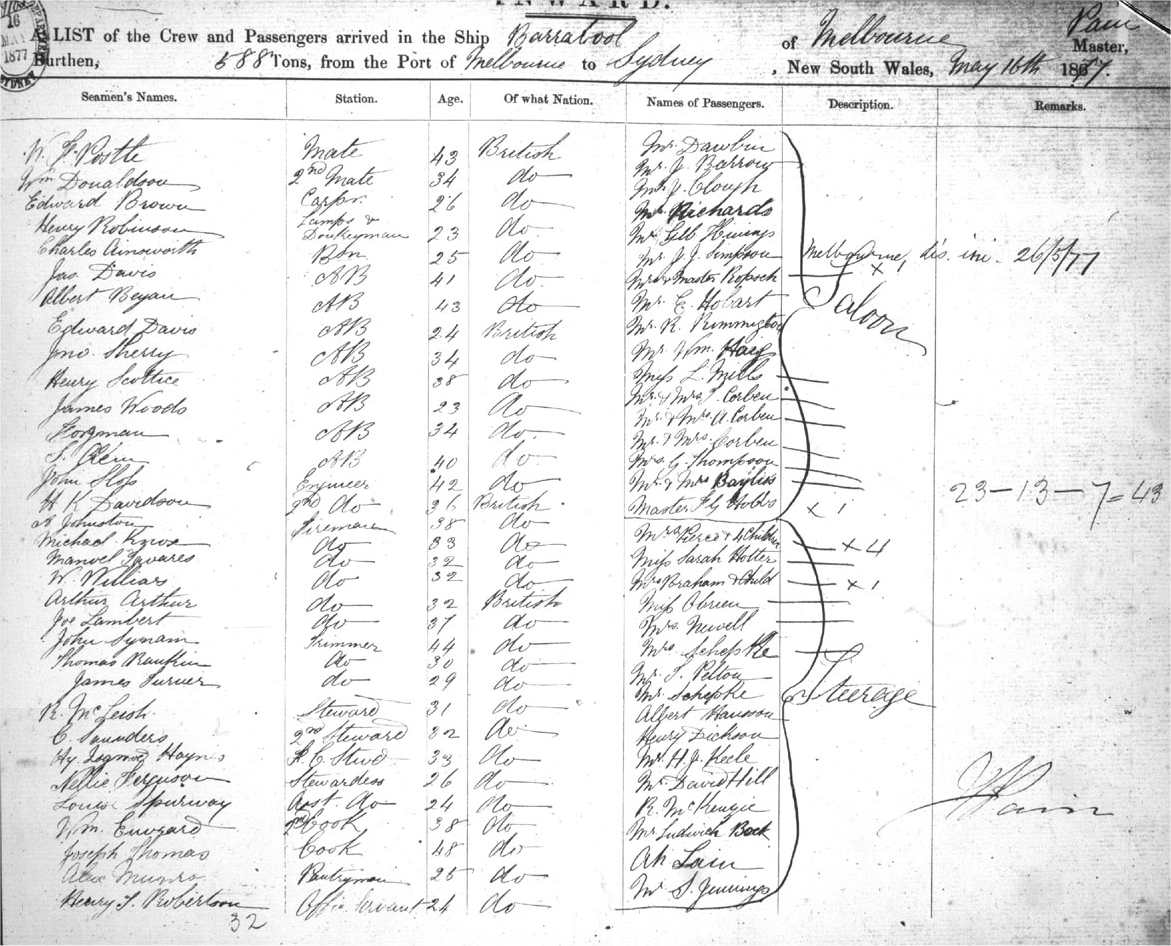 INWARD.
16
MAY
1877
SYDNEY
A LIST of the Crew and Passengers arrived in the Ship Barrabool of Melbourne Pain Master,
Burthen, 588 Tons, from the Port of Melbourne to Sydney, New South Wales, May 16th 1877.
Seamen's Names. Station. Age. Of what Nation. Names of Passengers. Description. Remarks.
W. F. Postle Mate 43 British Mr. Dawbin
Wm Donaldson 2nd Mate 34 do Mr. J. Barrow
Edward Brown Carpr. 26 do Mr. J. Clough
Henry Robinson Lamps & Donkeyman 23 do Mr Richards
Charles Ainsworth Bsn 25 do Mr. Gilb
Jas. Davis AB 41 do Mr. J. J. Simpson Melbourne, dis. ini. 26/5/77
Albert Beyan AB 43 do Mrs & Master x 1
Edward Davis AB 24 British Mr. C. Hobart Saloon
Jno. Sherry AB 34 do Mr. R. Rimmington
Henry Scottice AB 38 do Mr. Wm. Haeg
James Woods AB 23 do Miss L. Mills
AB 34 do Mr. & Mrs. J. Corben
AB 40 do Mr. & Mrs A. Corben
John Slop Engineer 42 do Mr. & Mrs. Corben
H K Davidson 2nd do 36 British Mrs. G. Thompson
Johnston Fireman 38 do Mr. & Mrs Bayliss 23-13-7=43
Michael do 33 do Master F G Hobbs x 1
Manoel Tavares do 32 do Mrs Pierce & 4 Children x 4
W. Williams do 32 do Miss Sarah Holter
Arthur Arthur do 32 British Mrs Braham & Child x 1
Joe Lambert do 37 do Miss OBrien
John Synain Trimmer 44 do Mrs. Newell
Thomas Rankin do 30 do Mrs Schepke
James Turner do 29 do Mr. T. Pelton
R. McLeish Steward 31 do Mr. Schepke Steerage
C. Saunders 2nd Steward 32 do Albert Hansson
Hy. Haynes F. C Stwd 33 do Henry Dickson
Nellie Ferguson Stewardess 26 do Mr. H. J. Keele
Louise Spurway Asst. do 24 do Mr. David Hill
Wm. 2nd Cook 38 do R. McKenzie
Joseph Thomas Cook 48 do Mr Ludwich Bock J Pain
Alex Munro Pantryman 25 do Ah Lain
Henry T. Robertson Offic Servant 24 do Mr. S. Jennings
32